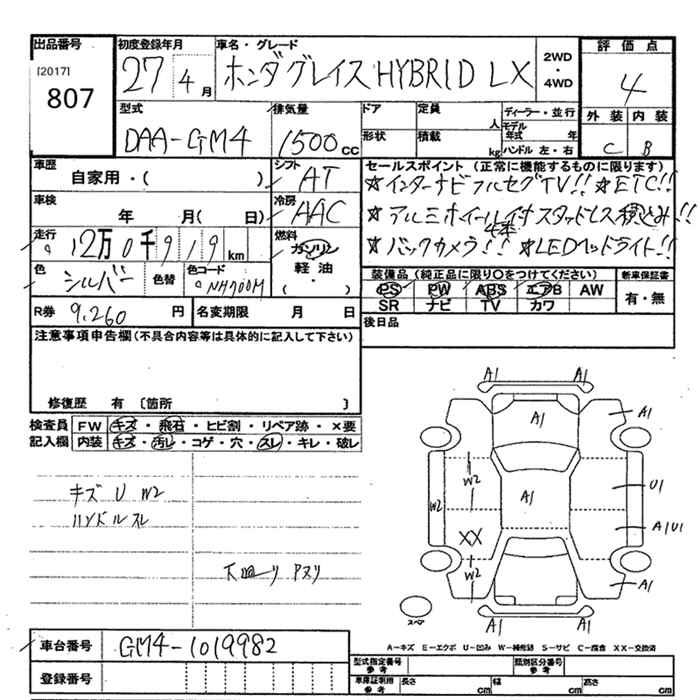 出品番号 初度登録年月 車名・グレード 評価点
[2017]
807
27年4月 ホンダグレイス HYBRID LX
2WD
・
4WD
4
型式 排気量 ドア 定員 人 ディーラー・並行 外装 内装
DAA-GM4 1500cc 形状 積載 kg モデル年式 年 ハンドル 左・右 C B
車歴 自家用・( ) シフト AT
セールスポイント (正常に機能するものに限ります)
☆インターナビフルセグTV!! ☆ETC!!
車検 年 月(日) 冷房 AAC
☆アルミホイール付スタッドレス4本積込み!!
走行 12万0千919km 燃料 ガソリン
☆バックカメラ!! ☆LEDヘッドライト!!
色 シルバー 色替 色コード NH700M 軽油・( )
装備品 (純正品に限り○をつけてください) 新車保証書
PS PW ABS エアB AW 有・無
SR ナビ TV カワ
R券 9,260円 名変期限 月 日 後日品
注意事項申告欄(不具合内容等は具体的に記入して下さい)
修復歴 有 〔箇所 〕
検査員 FW キズ・飛石・ヒビ割・リペア跡・×要
記入欄 内装 キズ・汚レ・コゲ・穴・スレ・キレ・破レ
キズ U W2
ハンドルスレ
下廻り アスリ
A1 A1
A1 A1
W2 W2 A1 U1
XX A1U1
W2 A1
A1 A1
スペア
車台番号 GM4-1019982
A-キズ E-エクボ U-凹み W-補修跡 S-サビ C-腐食 XX-交換済
登録番号
型式指定番号 参考 類別区分番号 参考
車庫証明用 参考 長さ cm 幅 cm 高さ cm